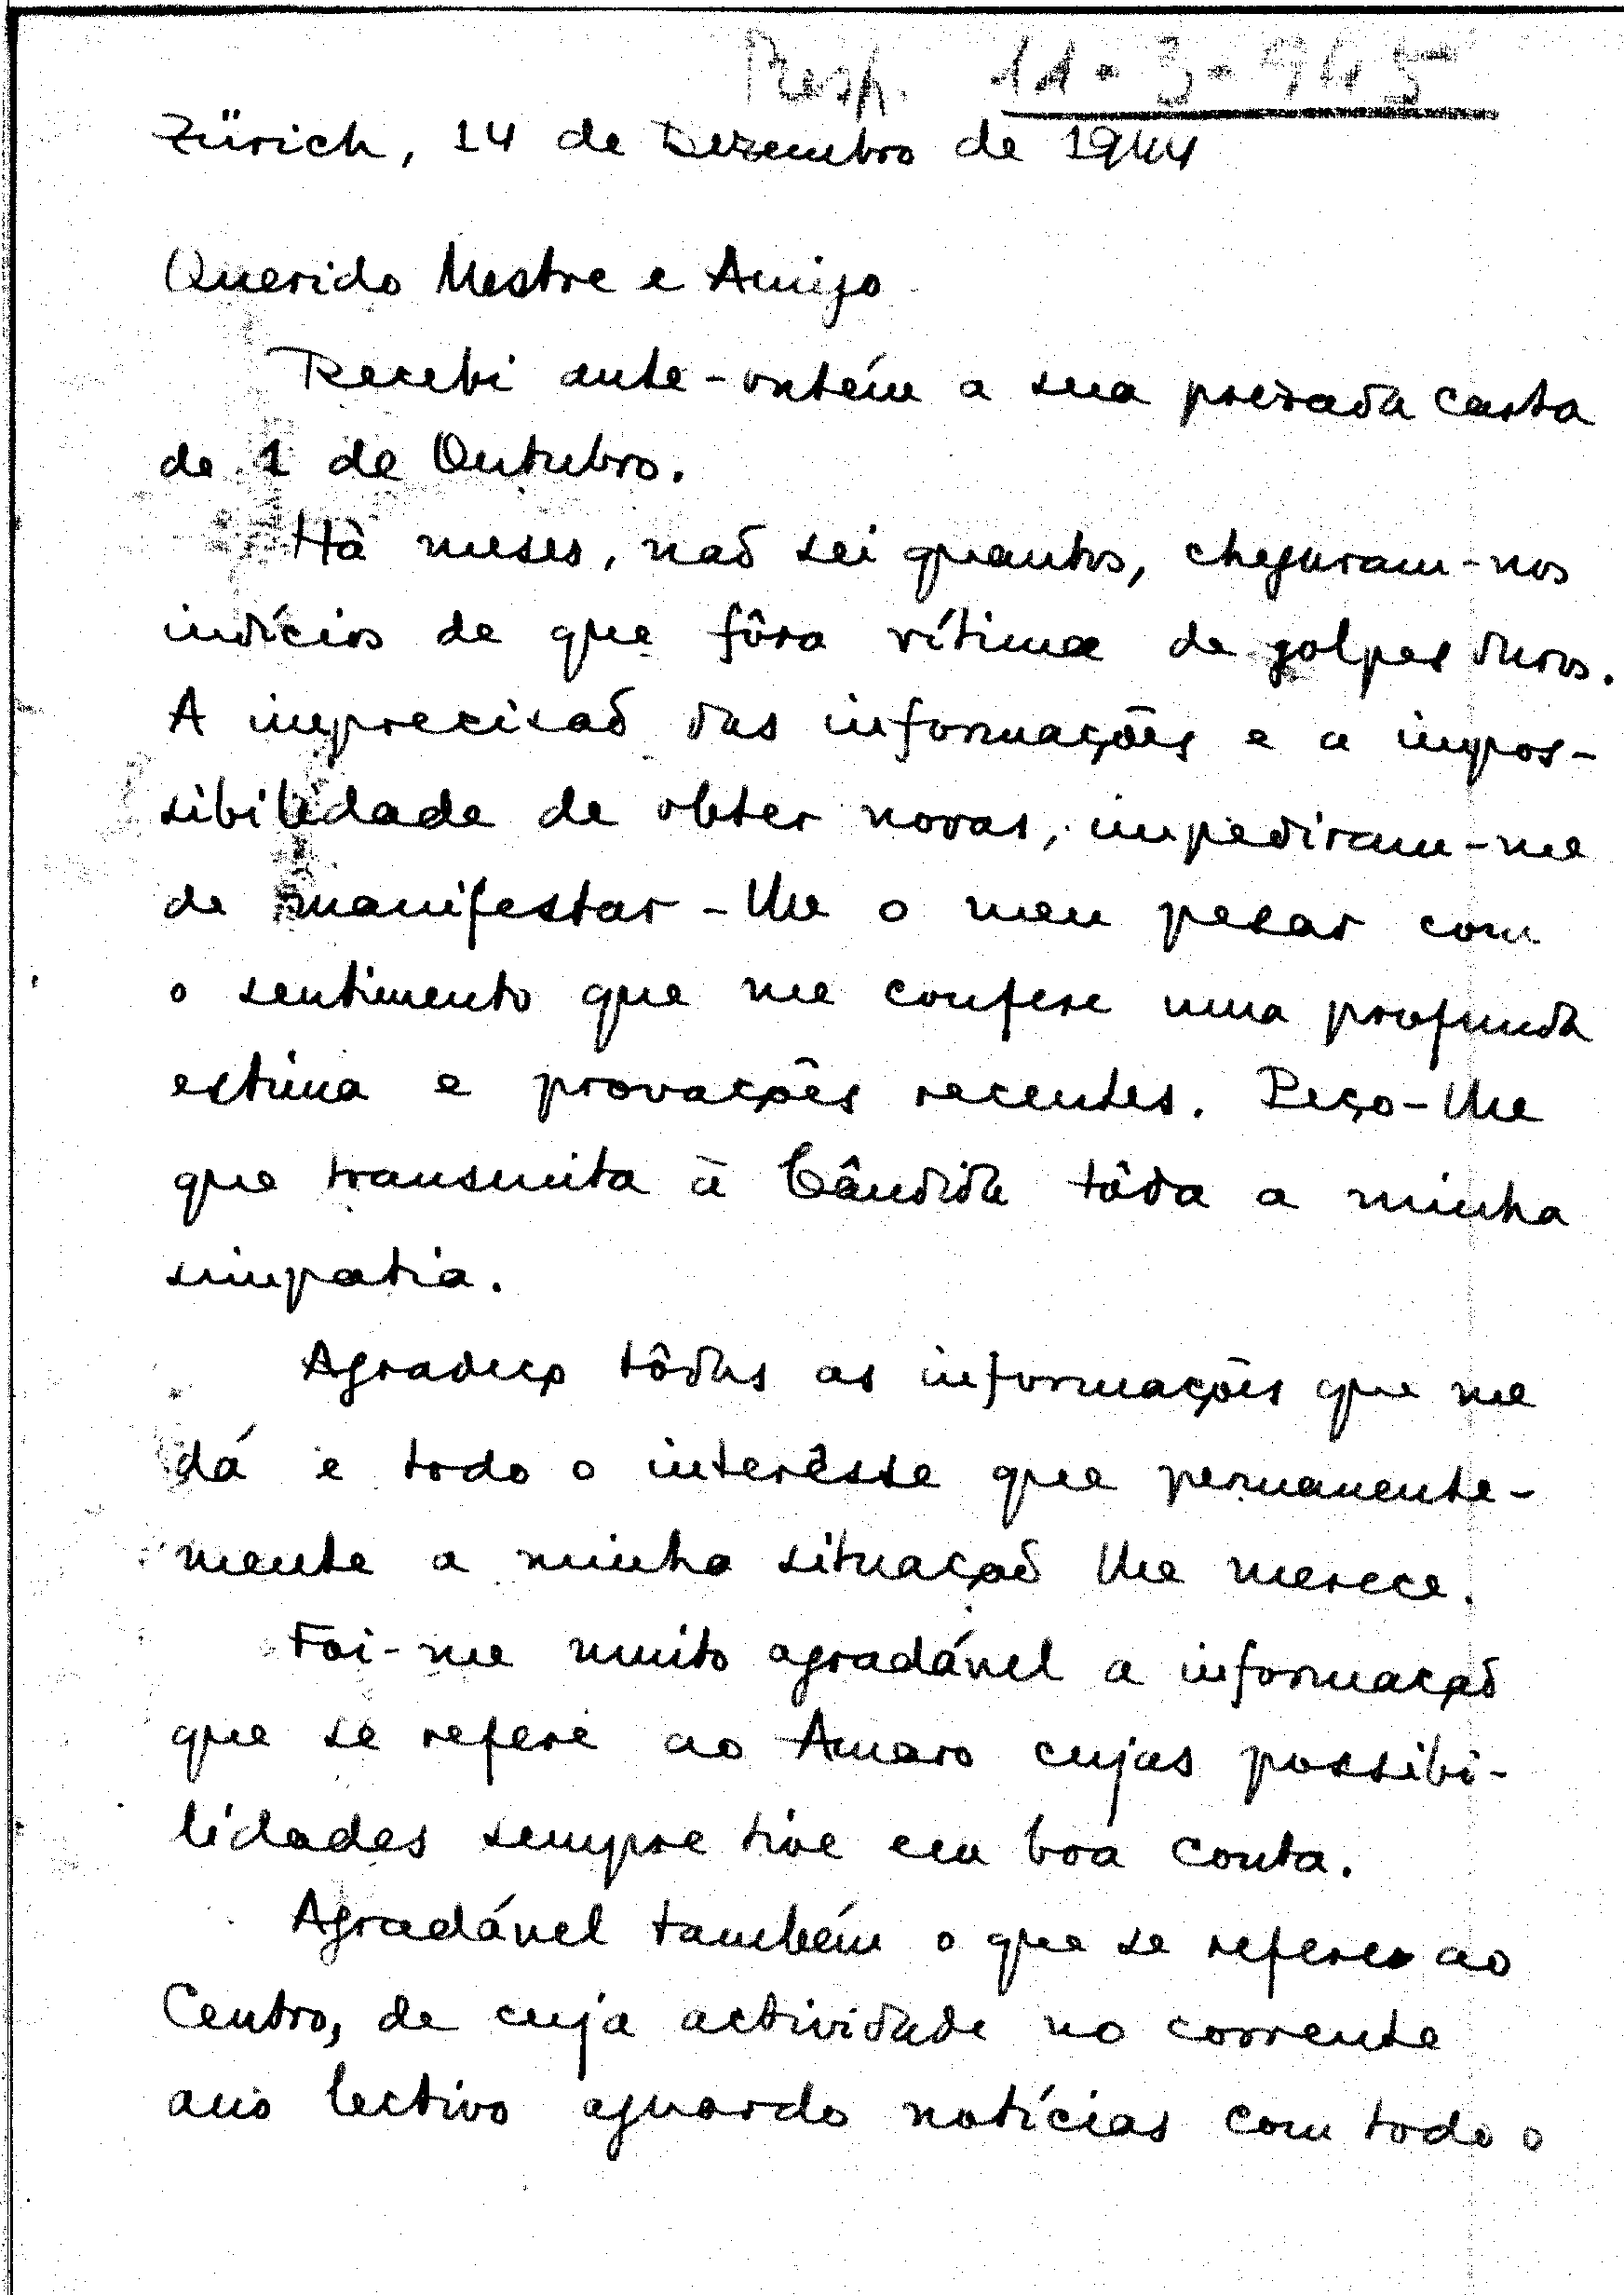 Resp. 11-3-945
Zürich, 14 de Dezembro de 1944
Querido Mestre e Amigo
Recebi ante-ontém a sua prezada carta
de 1 de Outubro.
Hà meses, naõ sei quantos, chegaram-nos
indícios de que fôra vítima de golpes duros.
A imprecisaõ das informações e a impos-
sibilidade de obter novas, impediram-me
de manifestar-lhe o meu pesar com
o sentimento que me confere uma profunda
estima e provações recentes. Peço-lhe
que transmita à Cândida tôda a minha
simpatia.
Agradeço tôdas as informações que me
dá e todo o interêsse que permanente-
mente a minha situaçaõ lhe merece.
Foi-me muito agradável a informaçaõ
que se refere ao Amaro cujas possibi-
lidades sempre tive em boa conta.
Agradável também o que se refere ao
Centro, de cuja actividade no corrente
ano lectivo aguardo notícias com todo o